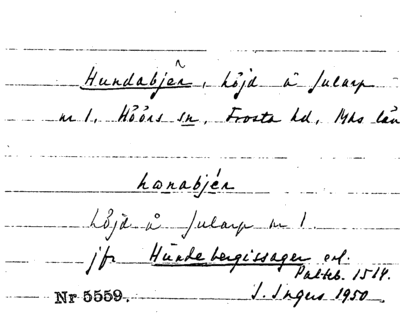 Hundabjer, höjd å Jularp
nr 1, Höörs sn, Frosta hd, Mhs län
hœnabjér
höjd å Jularp nr 1.
jfr Hundebergissager enl.
Palteb. 1514.
Nr 5559. I. Ingers 1950.